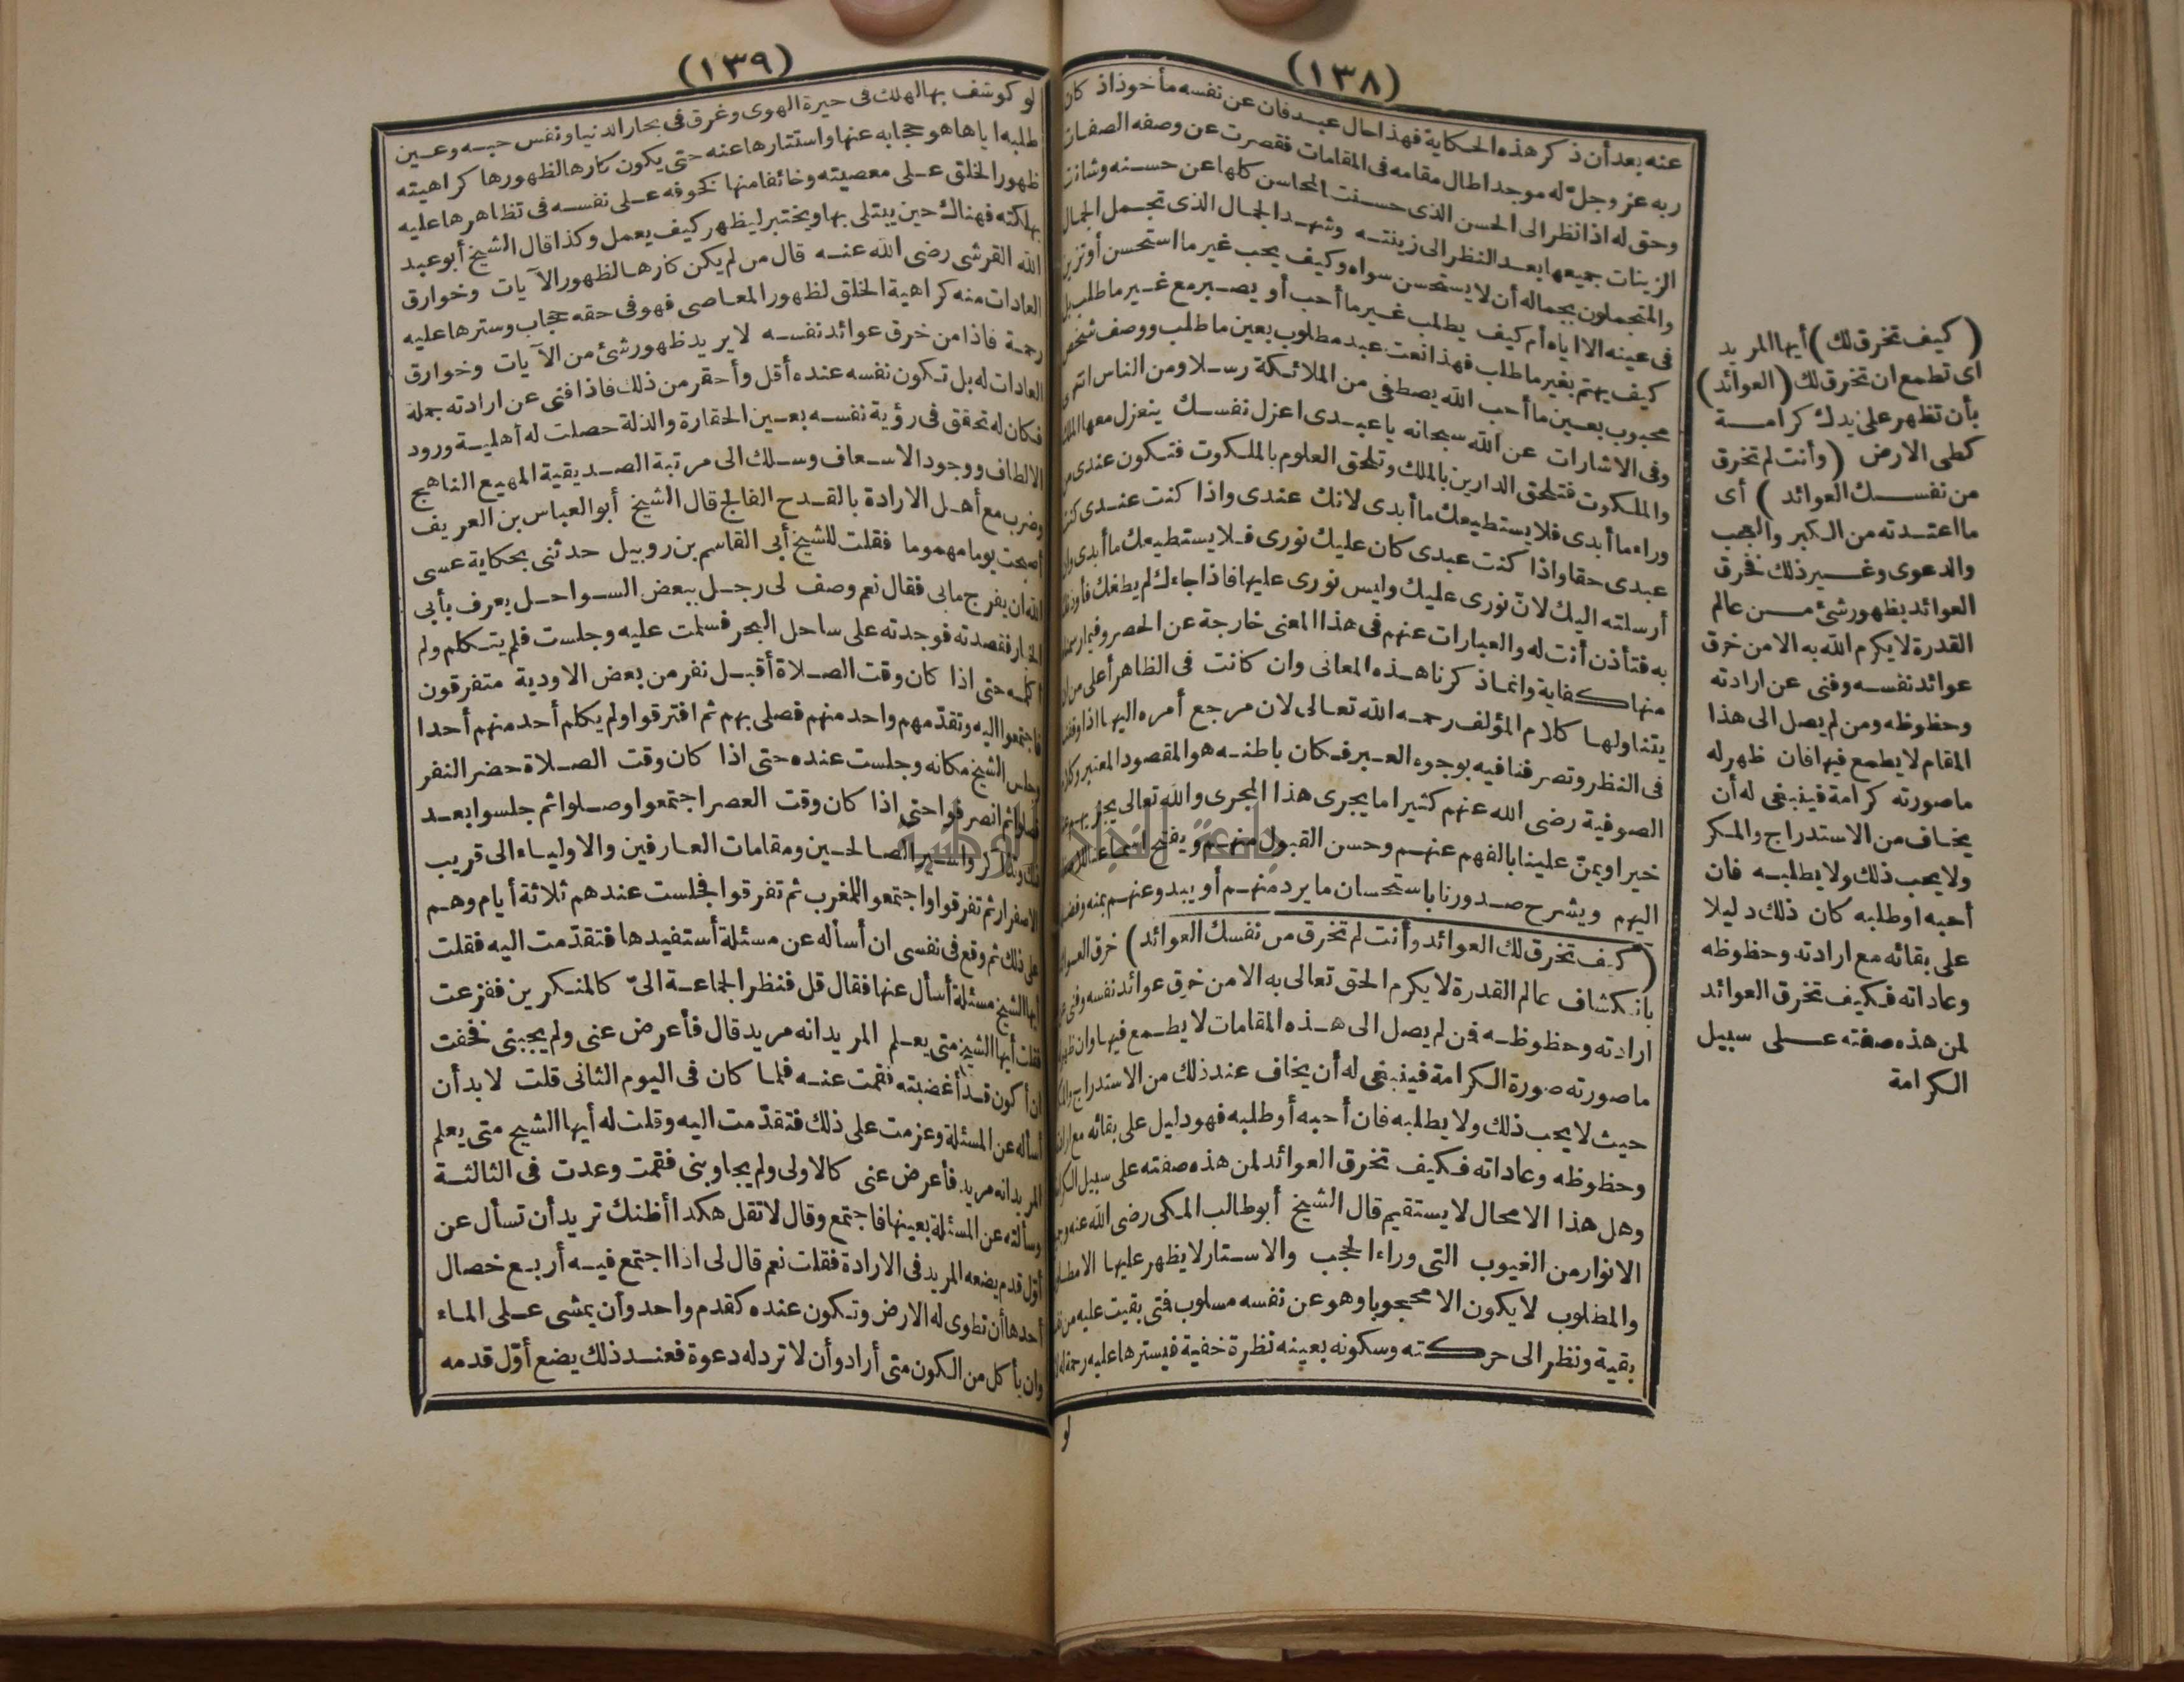 (١٣٨)
عنه بعد أن ذكر هذه الحكاية فهذا حال عبد فان عن نفسه مأخوذ اذ كان
ربه عز وجل له موجد اطال مقامه فى المقامات فقصرت عن وصفه الصفات
وحق له اذا نظر الى الحسن الذى حسنت المحاسن كلها عن حسنه وشانت
الزينات جميعها بعد النظر الى زينته وشهد الجمال الذى تجمل الجمال
والمتجملون بجماله أن لا يستحسن سواه وكيف يحب غير ما استحسن أو تزين
فى عينه الا اياه أم كيف يطلب غير ما أحب أو يصبر مع غير ما طلب بل
كيف يهتم بغير ما طلب فهذا نعت عبد مطلوب بعين ما طلب ووصف شخص
محبوب بعين ما أحب الله يصطفى من الملائكة رسلا ومن الناس انتهى
وفى الاشارات عن الله سبحانه يا عبدى اعزل نفسك ينعزل معها الملك
والملكوت فتلحق الدارين بالملك وتلحق العلوم بالملكوت فتكون عندى من
وراء ما أبدى فلا يستطيعك ما أبدى لانك عندى واذا كنت عندى كنت
عبدى حقا واذا كنت عبدى كان عليك نورى فلا يستطيعك ما أبدى وان
أرسلته اليك لان نورى عليك وليس نورى عليها فاذا جاءك لم يطعك فأوذنك
به فتأذن أنت له والعبارات عنهم فى هذا المعنى خارجة عن الحصر وفيما رسمناه
منها كفاية وانما ذكرنا هذه المعانى وان كانت فى الظاهر أعلى من ان
يتناولها كلام المؤلف رحمه الله تعالى لان مرجع أمره اليها اذا وفقنا
فى النظر وتصرفنا فيه بوجوه العبر فكان باطنه هو المقصود المعتبر وكلام
الصوفية رضى الله عنهم كثيرا ما يجرى هذا المجرى والله تعالى يجزيهم عنا
خيرا ويمنّ علينا بالفهم عنهم وحسن القبول منهم ويفتح أسماعنا للاستماع
اليهم ويشرح صدورنا باستحسان ما يرد منهم أو يبدو عنهم بمنه وفضله
(كيف تخرق لك العوائد وأنت لم تخرق من نفسك العوائد) خرق العوائد
بانكشاف عالم القدرة لا يكرم الحق تعالى به الا من خرق عوائد نفسه وفنى عن
ارادته وحظوظه فمن لم يصل الى هذه المقامات لا يطمع فيها وان ظهر له
ما صورته صورة الكرامة فينبغى له أن يخاف عند ذلك من الاستدراج والمكر
حيث لا يحب ذلك ولا يطلبه فان أحبه أو طلبه فهو دليل على بقائه مع ارادته
وحظوظه وعاداته فكيف تخرق العوائد لمن هذه صفته على سبيل الكرامة
وهل هذا الا محال لا يستقيم قال الشيخ أبو طالب المكى رضى الله عنه وجميع
الانوار من الغيوب التى وراء الحجب والاستار لا يظهر عليها الا مطلوب
والمطلوب لا يكون الا محجوبا وهو عن نفسه مسلوب فمتى بقيت عليه من نفسه
بقية ونظر الى حركته وسكونه بعينه نظرة خفية فيسترها عليه رحمة له
لو
(كيف تخرق لك) أيها المريد
اى تطمع ان تخرق لك (العوائد)
بأن تظهر على يدك كرامة
كطى الارض (وأنت لم تخرق
من نفسك العوائد) أى
ما اعتدته من الكبر والعجب
والدعوى وغير ذلك فخرق
العوائد بظهور شئ من عالم
القدرة لا يكرم الله به الا من خرق
عوائد نفسه وفنى عن ارادته
وحظوظه ومن لم يصل الى هذا
المقام لا يطمع فيها فان ظهر له
ما صورته كرامة فينبغى له أن
يخاف من الاستدراج والمكر
ولا يحب ذلك ولا يطلبه فان
أحبه او طلبه كان ذلك دليلا
على بقائه مع ارادته وحظوظه
وعاداته فكيف تخرق العوائد
لمن هذه صفته على سبيل
الكرامة
(١٣٩)
لو كوشف بها لهلك فى حيرة الهوى وغرق فى بحار الدنيا ونفس حبه وعين
طلبه اياها هو حجابه عنها واستتارها عنه حتى يكون كارها لظهورها كراهيته
ظهور الخلق على معصيته وخائفا منها كخوفه على نفسه فى تظاهرها عليه
بهلكته فهناك حين يبتلى بها ويختبر ليظهر كيف يعمل وكذا قال الشيخ أبو عبد
الله القرشى رضى الله عنه قال من لم يكن كارها لظهور الآيات وخوارق
العادات منه كراهية الخلق لظهور المعاصى فهو فى حقه حجاب وسترها عليه
رحمة فاذا من خرق عوائد نفسه لا يريد ظهور شئ من الآيات وخوارق
العادات له بل تكون نفسه عنده أقل وأحقر من ذلك فاذا فنى عن ارادته جملة
فكان له تحقق فى رؤية نفسه بعين الحقارة والذلة حصلت له أهلية ورود
الالطاف ووجود الاسعاف وسلك الى مرتبة الصديقية المهيع الناهج
وضرب مع أهل الارادة بالقدح الفالج قال الشيخ أبو العباس بن العريف
أصبحت يوما مهموما فقلت للشيخ أبى القاسم بن روبيل حدثنى بحكاية عسى
الله ان يفرج ما بى فقال نعم وصف لى رجل ببعض السواحل يعرف بأبى
الخيار فقصدته فوجدته على ساحل البحر فسلمت عليه وجلست فلم يتكلم ولم
أكلمه حتى اذا كان وقت الصلاة أقبل نفر من بعض الاودية متفرقون
فاجتمعوا اليه وتقدّمهم واحد منهم فصلى بهم ثم افترقوا ولم يكلم أحد منهم أحدا
وجلس الشيخ مكانه وجلست عنده حتى اذا كان وقت الصلاة حضر النفر
فصلوا ثم انصرفوا حتى اذا كان وقت العصر اجتمعوا وصلوا ثم جلسوا بعد
ذلك وتذاكروا سير الصالحين ومقامات العارفين والاولياء الى قريب
الاصفرار ثم تفرقوا واجتمعوا للمغرب ثم تفرقوا فجلست عندهم ثلاثة أيام وهم
على ذلك ثم وقع فى نفسى ان أسأله عن مسئلة أستفيدها فتقدّمت اليه فقلت
أيها الشيخ مسئلة أسأل عنها فقال قل فنظر الجماعة الىّ كالمنكرين ففزعت
فقلت أيها الشيخ متى يعلم المريد انه مريد قال فأعرض عنى ولم يجبنى فخفت
ان أكون قد أغضبته فقمت عنه فلما كان فى اليوم الثانى قلت لا بد أن
أسأله عن المسئلة وعزمت على ذلك فتقدّمت اليه وقلت له أيها الشيخ متى يعلم
المريد انه مريد فأعرض عنى كالاولى ولم يجاوبنى فقمت وعدت فى الثالثة
وسألته عن المسئلة بعينها فاجتمع وقال لا تقل هكذا أظنك تريد أن تسأل عن
أوّل قدم يضعه المريد فى الارادة فقلت نعم قال لى اذا اجتمع فيه أربع خصال
أحدها أن تطوى له الارض وتكون عنده كقدم واحد وأن يمشى على الماء
وان يأكل من الكون متى أراد وأن لا ترد له دعوة فعند ذلك يضع أوّل قدمه